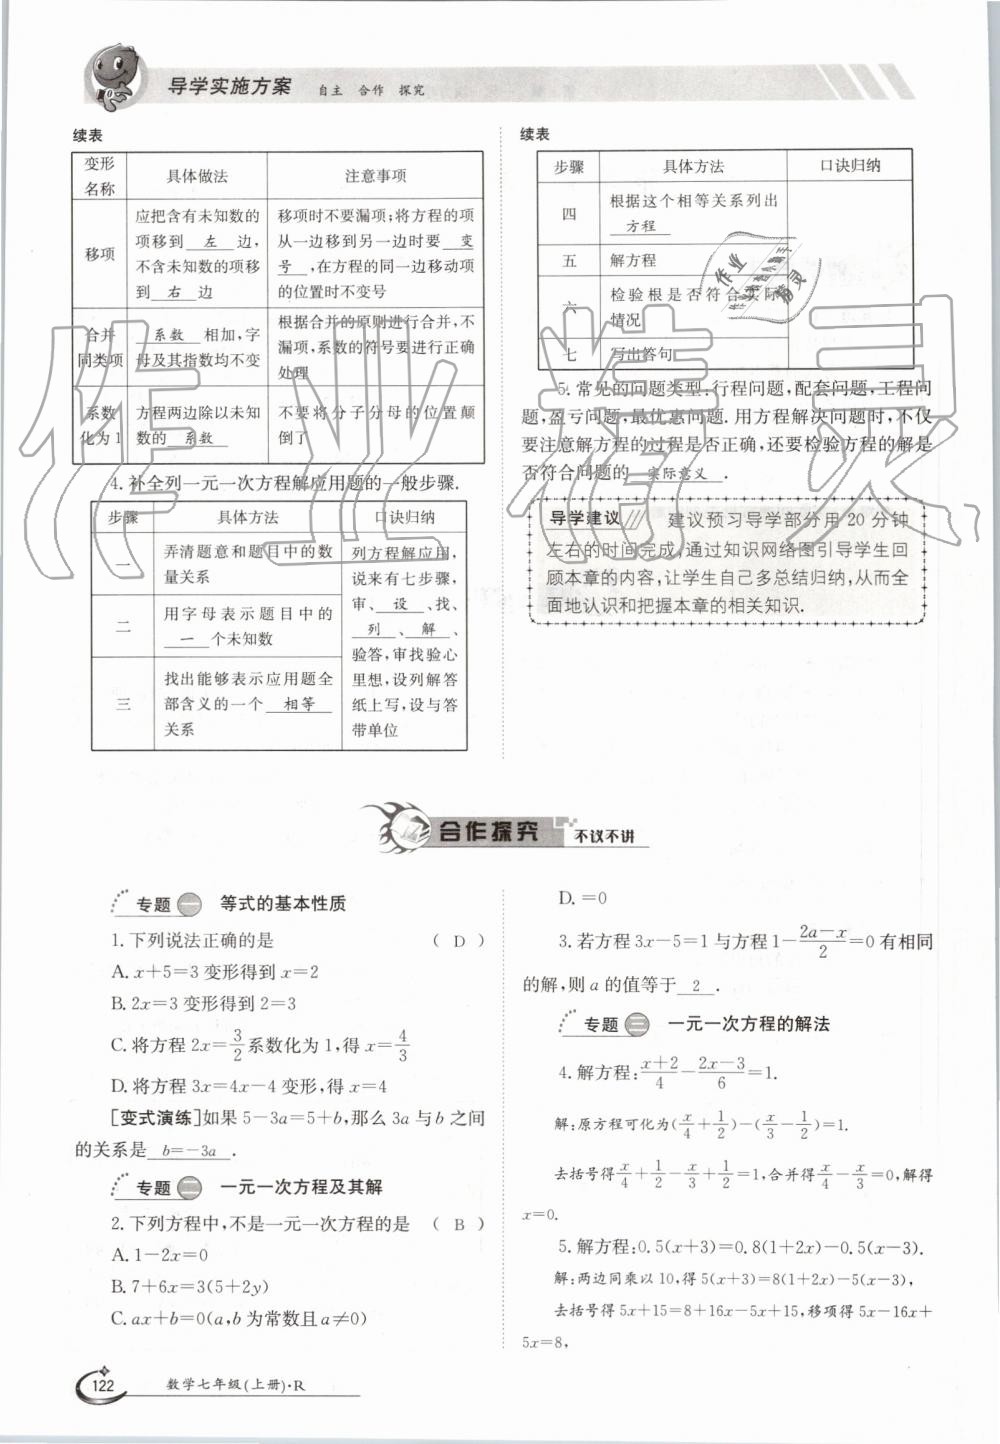 导学实施方案 自主 合作 探究
续表
变形名称 具体做法 注意事项
移项
应把含有未知数的
项移到 左 边,
不含未知数的项移
到 右 边
移项时不要漏项;将方程的项
从一边移到另一边时要 变
号 ,在方程的同一边移动项
的位置时不变号
合并
同类项
系数 相加,字
母及其指数均不变
根据合并的原则进行合并,不
漏项,系数的符号要进行正确
处理
系数
化为1
方程两边除以未知
数的 系数
不要将分子分母的位置颠
倒了
4. 补全列一元一次方程解应用题的一般步骤.
步骤 具体方法 口诀归纳
一
弄清题意和题目中的数
量关系
二
用字母表示题目中的
一 个未知数
三
找出能够表示应用题全
部含义的一个 相等
关系
列方程解应用,
说来有七步骤,
审、 设 、找、
列 、 解 、
验答,审找验心
里想,设列解答
纸上写,设与答
带单位
续表
步骤 具体方法 口诀归纳
四
根据这个相等关系列出
方程
五 解方程
六
检验根是否符合实际
情况
七 写出答句
5. 常见的问题类型:行程问题,配套问题,工程问
题,盈亏问题,最优惠问题. 用方程解决问题时,不仅
要注意解方程的过程是否正确,还要检验方程的解是
否符合问题的 实际意义 .
导学建议 建议预习导学部分用 20 分钟
左右的时间完成,通过知识网络图引导学生回
顾本章的内容,让学生自己多总结归纳,从而全
面地认识和把握本章的相关知识.
合作探究 不议不讲
专题一 等式的基本性质
1. 下列说法正确的是 ( D )
A. x+5=3 变形得到 x=2
B. 2x=3 变形得到 2=3
C. 将方程 2x=3/2 系数化为 1,得 x=4/3
D. 将方程 3x=4x-4 变形,得 x=4
[变式演练]如果 5-3a=5+b,那么 3a 与 b 之间
的关系是 b=-3a .
专题二 一元一次方程及其解
2. 下列方程中,不是一元一次方程的是 ( B )
A. 1-2x=0
B. 7+6x=3(5+2y)
C. ax+b=0(a,b 为常数且 a≠0)
D. =0
3. 若方程 3x-5=1 与方程 1-(2a-x)/2=0 有相同
的解,则 a 的值等于 2 .
专题三 一元一次方程的解法
4. 解方程:(x+2)/4-(2x-3)/6=1.
解:原方程可化为(x/4+1/2)-(x/3-1/2)=1.
去括号得x/4+1/2-x/3+1/2=1,合并得x/4-x/3=0,解得
x=0.
5. 解方程:0.5(x+3)=0.8(1+2x)-0.5(x-3).
解:两边同乘以 10,得 5(x+3)=8(1+2x)-5(x-3),
去括号得 5x+15=8+16x-5x+15,移项得 5x-16x+
5x=8,
122 数学七年级(上册)·R
作业精灵